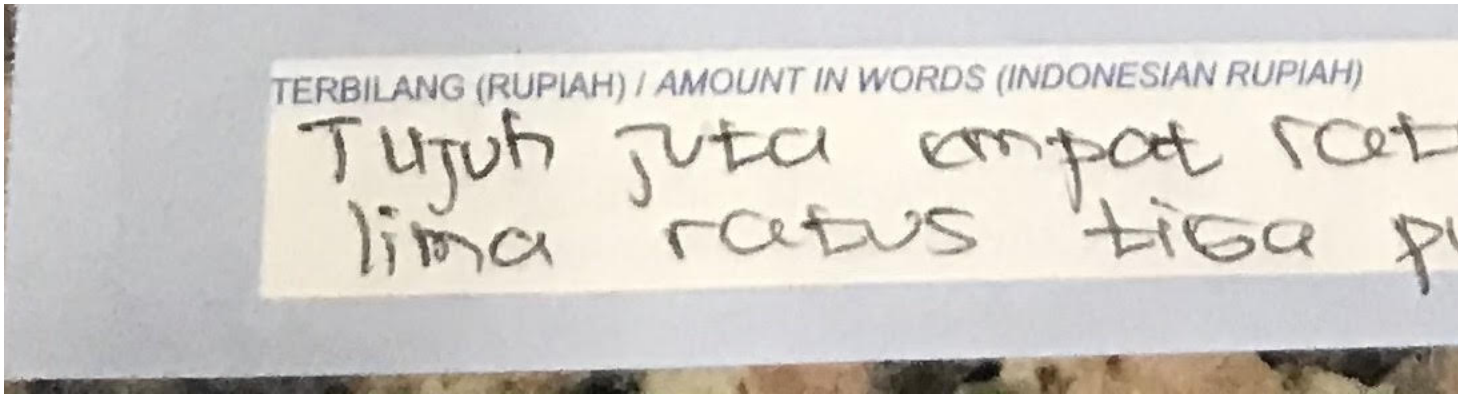 TERBILANG (RUPIAH) / AMOUNT IN WORDS (INDONESIAN RUPIAH)
Tujuh juta empat rat
lima ratus tiga pu